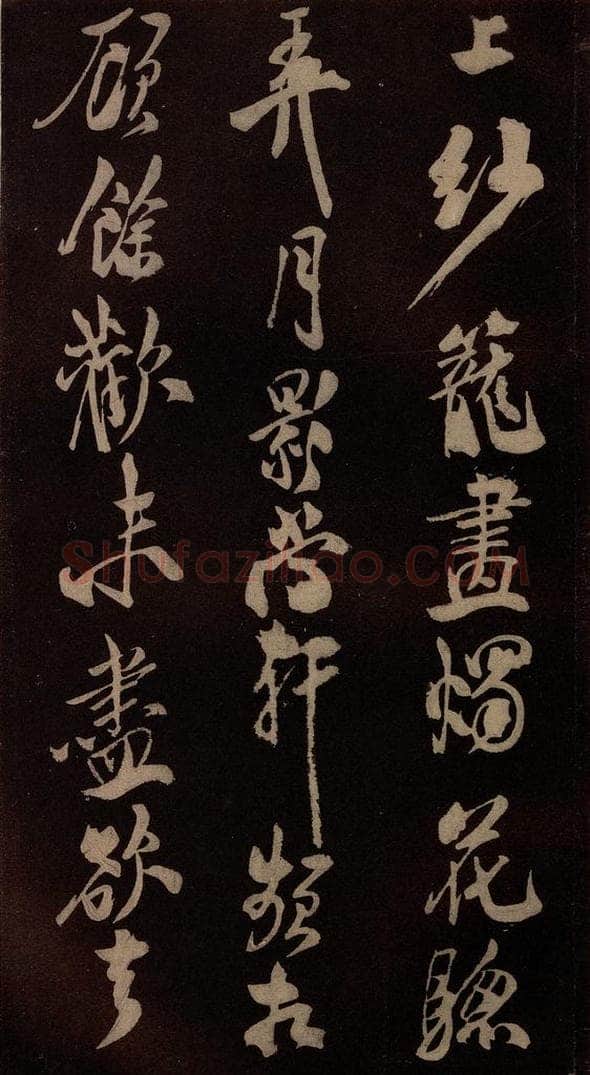 上紗籠畫燭花驄
弄月影當軒頻相
顧餘歡未盡欲去
Shufaziliao.COM